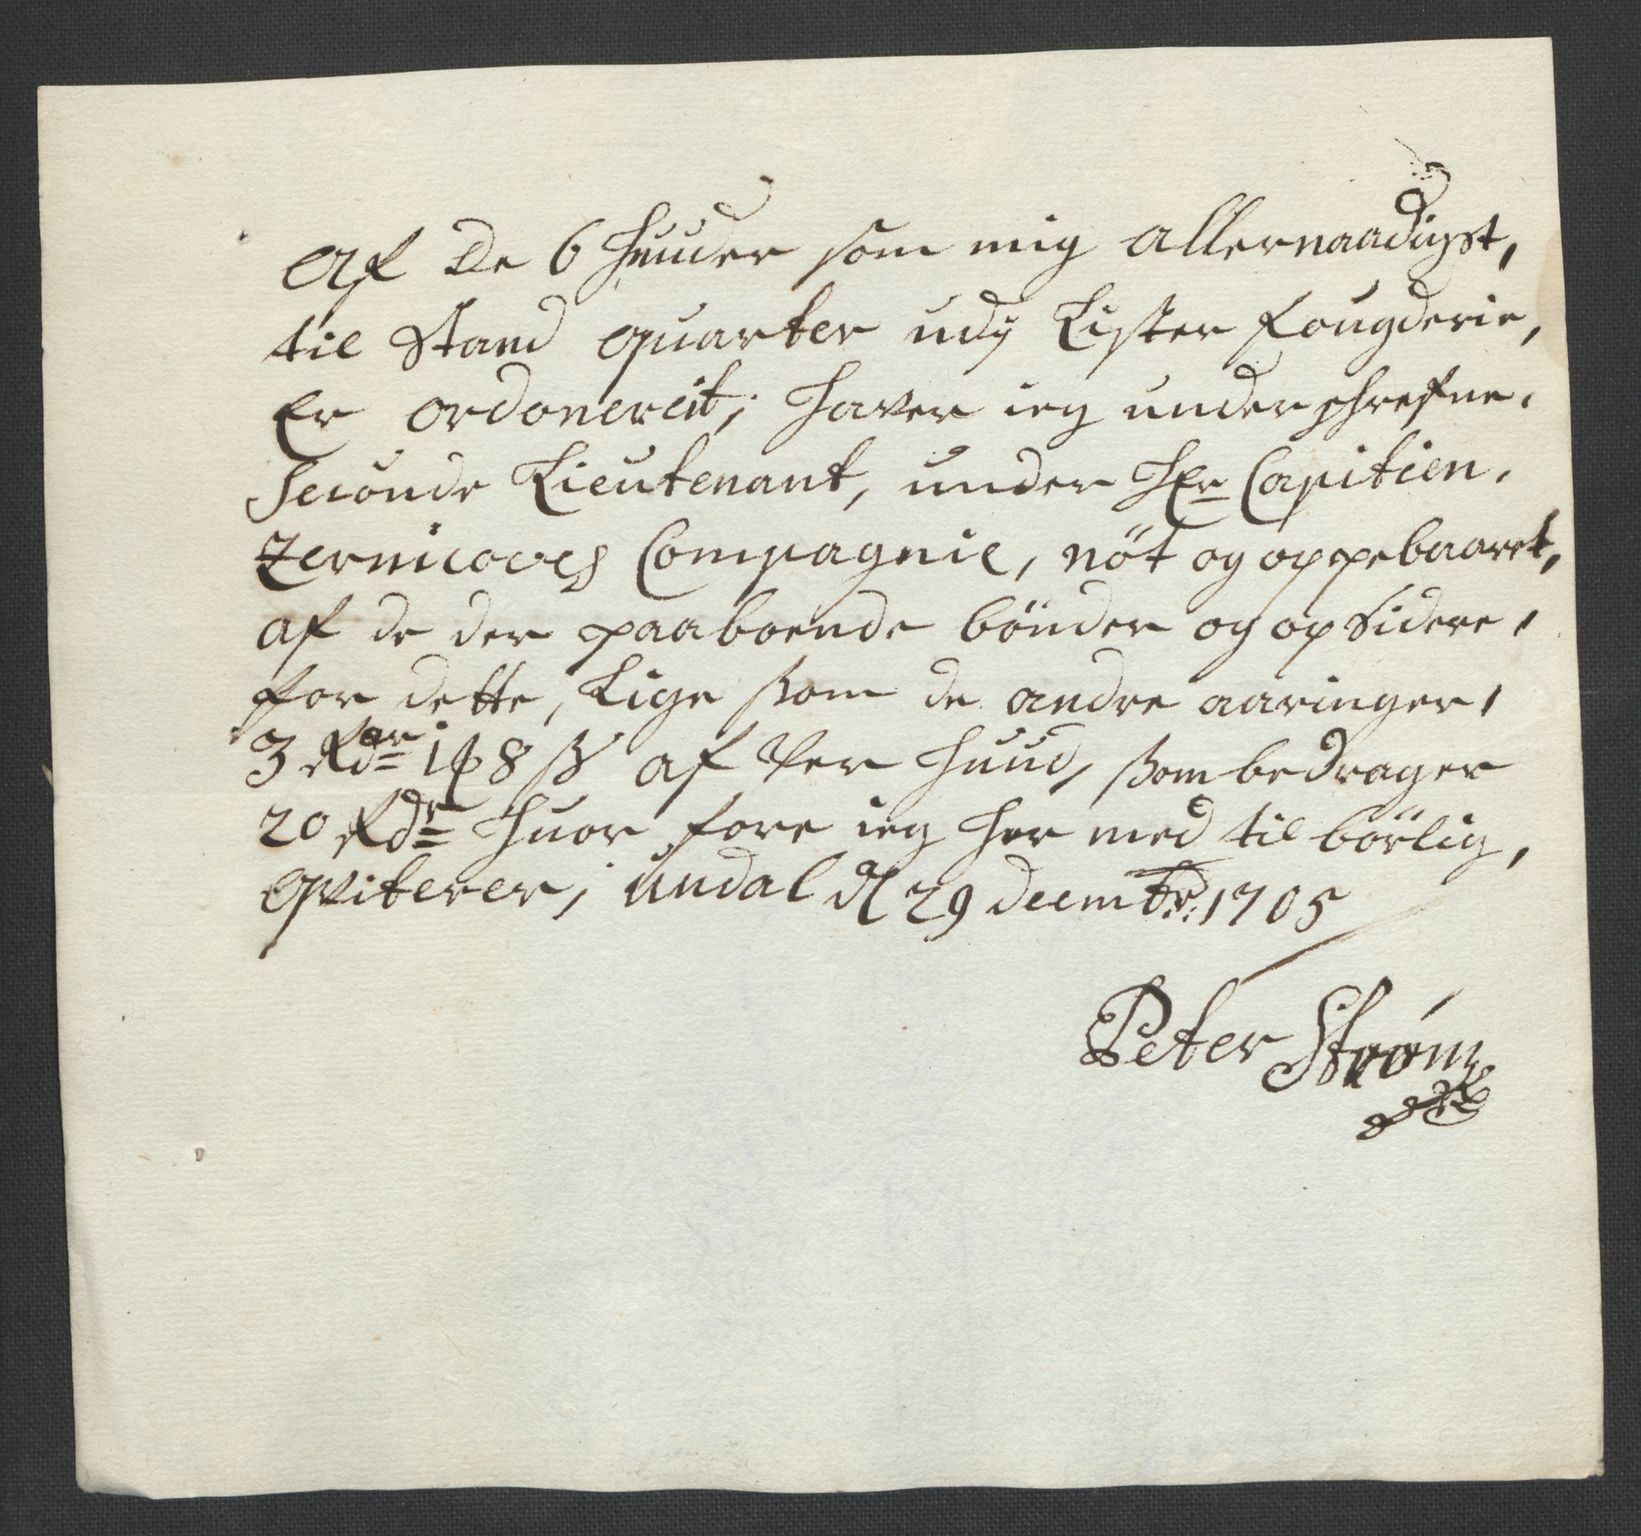 Af De 6 Huuder som mig allernaadigst,
til Stand quarter udj Lister fougderie,
Er ordonerit; haver ieg underschrefne,
Seconde Lieutenant, under Hr Capitien,
Zernicoves Compagnie, nöt og oppebaaret,
af de der paaboende bönder og opsidere,
for dette, Lige som de andre aaringer,
3 Rdr 1 8 ß af Ver Huud, som bedrager
20 Rdr huor fore ieg her med til börlig,
qviterer; undal d 29 decembr: 1705
Peter Strøm